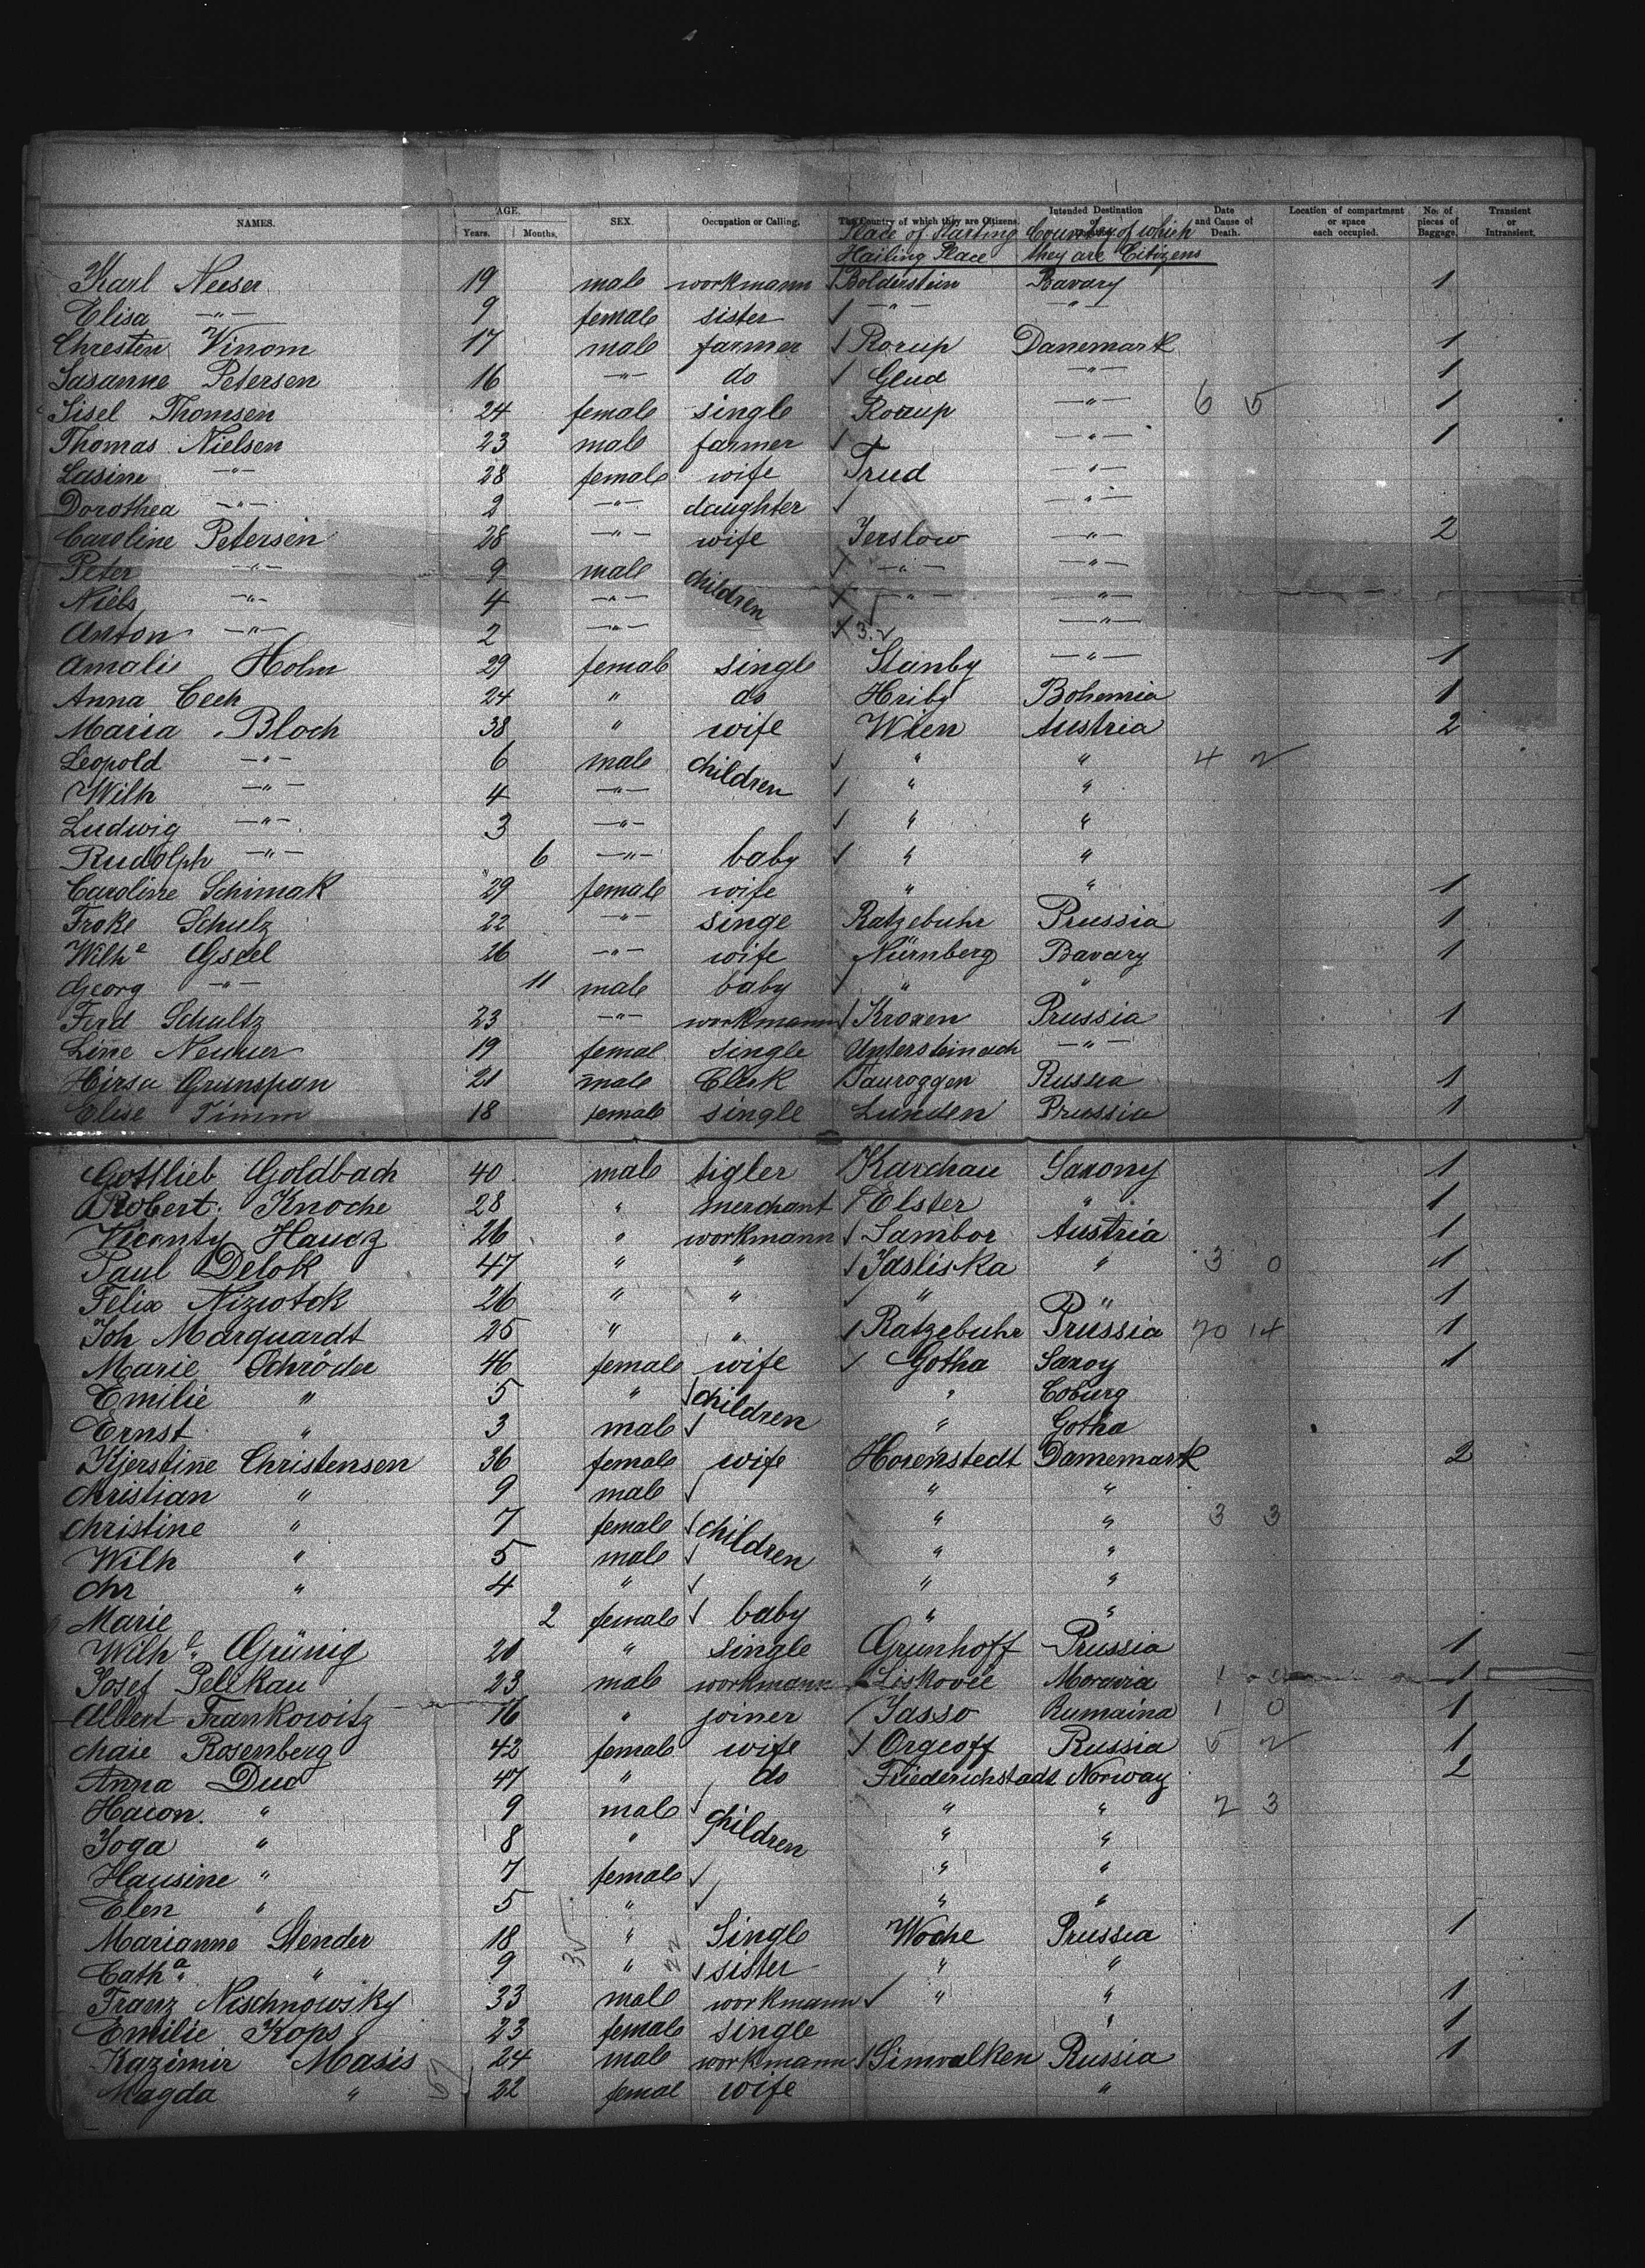 NAMES. AGE. Years. Months. SEX. Occupation or Calling. The Country of which they are Citizens. Intended Destination or Date and Cause of Death. Location of compartment or space each occupied. No. of pieces of Baggage. Transient or Intransient.
Place of Starting Country of which
Hailing Place they are Citizens
Karl Neeser 19 male workmann Bolderstein Bavary 1
Elisa —"— 9 female sister —"— —"—
Chresten Vinom 17 male farmer Rorup Danemark 1
Sasanne Petersen 16 —"— do Glud —"— 1
Sisel Thomsen 24 female single Rorup —"— 6 5 1
Thomas Nielsen 23 male farmer —"— 1
Lasine —"— 28 female wife Trud —"—
Dorothea —"— 2 —"— daughter —"—
Caroline Petersen 28 —"— wife Jerslow —"— 2
Peter —"— 9 male children —"— —"—
Niels —"— 4 —"— —"— —"—
Anton —"— 2 —"— 3. —"—
Amalie Holm 29 female single Stenby —"— 1
Anna Cech 24 " do Hriby Bohemia 1
Maria Bloch 38 " wife Wien Austria 2
Leopold —"— 6 male children " " 4 2
Wilh —"— 4 —"— " "
Ludwig —"— 3 —"— " "
Rudolph —"— 6 —"— baby " "
Caroline Schimak 29 female wife " " 1
Froke Schulz 22 —"— singe Ratzebuhr Prussia 1
Wilhe Gsell 26 —"— wife Nürnberg Bavary 1
Georg —"— 11 male baby " "
Ferd Schultz 23 —"— workmann Kroxen Prussia 1
Line Neuner 19 femal single Untersteinach —"—
Hirsa Grunspan 21 male Clerk Tauroggen Russia 1
Elise Timm 18 female single Lunden Prussia 1
Gottlieb Goldbach 40 male tigler Karchau Saxony 1
Robert Knoche 28 " merchant Elster " 1
Viconty 26 " workmann Sambor Austria 1
Paul Delok 47 " " Jasliska " 3 0 1
Felix Niziotok 26 " " " " 1
Joh Marquardt 25 " " Ratzebuhr Prussia 20 14 1
Marie Schröder 46 female wife Gotha Saxoy 1
Emilie " 5 " children " Coburg
Ernst " 3 male " Gotha
Kjerstine Christensen 36 female wife Horenstedt Dannemark 2
Christian " 9 male " "
Christine " 7 female children " " 3 3
Wilh " 5 male " "
Chr " 4 " " "
Marie 2 female baby " "
Wilhe Grünig 20 " single Grünhoff Prussia 1
Josef Pelikau 23 male workmann Liskovic Moravia 1
Albert Frankowitz 16 " joiner Jasso Rumaina 1 0 1
Chaie Rosenberg 42 female wife Orgeoff Russia 5 2 1
Anna Due 47 " do Friederichstadt Norway 2
Hacon " 9 male children " " 2 3
Joga " 8 " " "
Hausine " 7 female " "
Elen " 5 " " "
Marianne Stender 18 " Single Woche Prussia 1
Catha " 9 " sister " "
Franz Nischnowsky 33 male workmann " " 1
Emilie Kops 23 female single " 1
Kazimir Masis 24 male workmann Simvalken Russia 1
Magda " 22 femal wife "